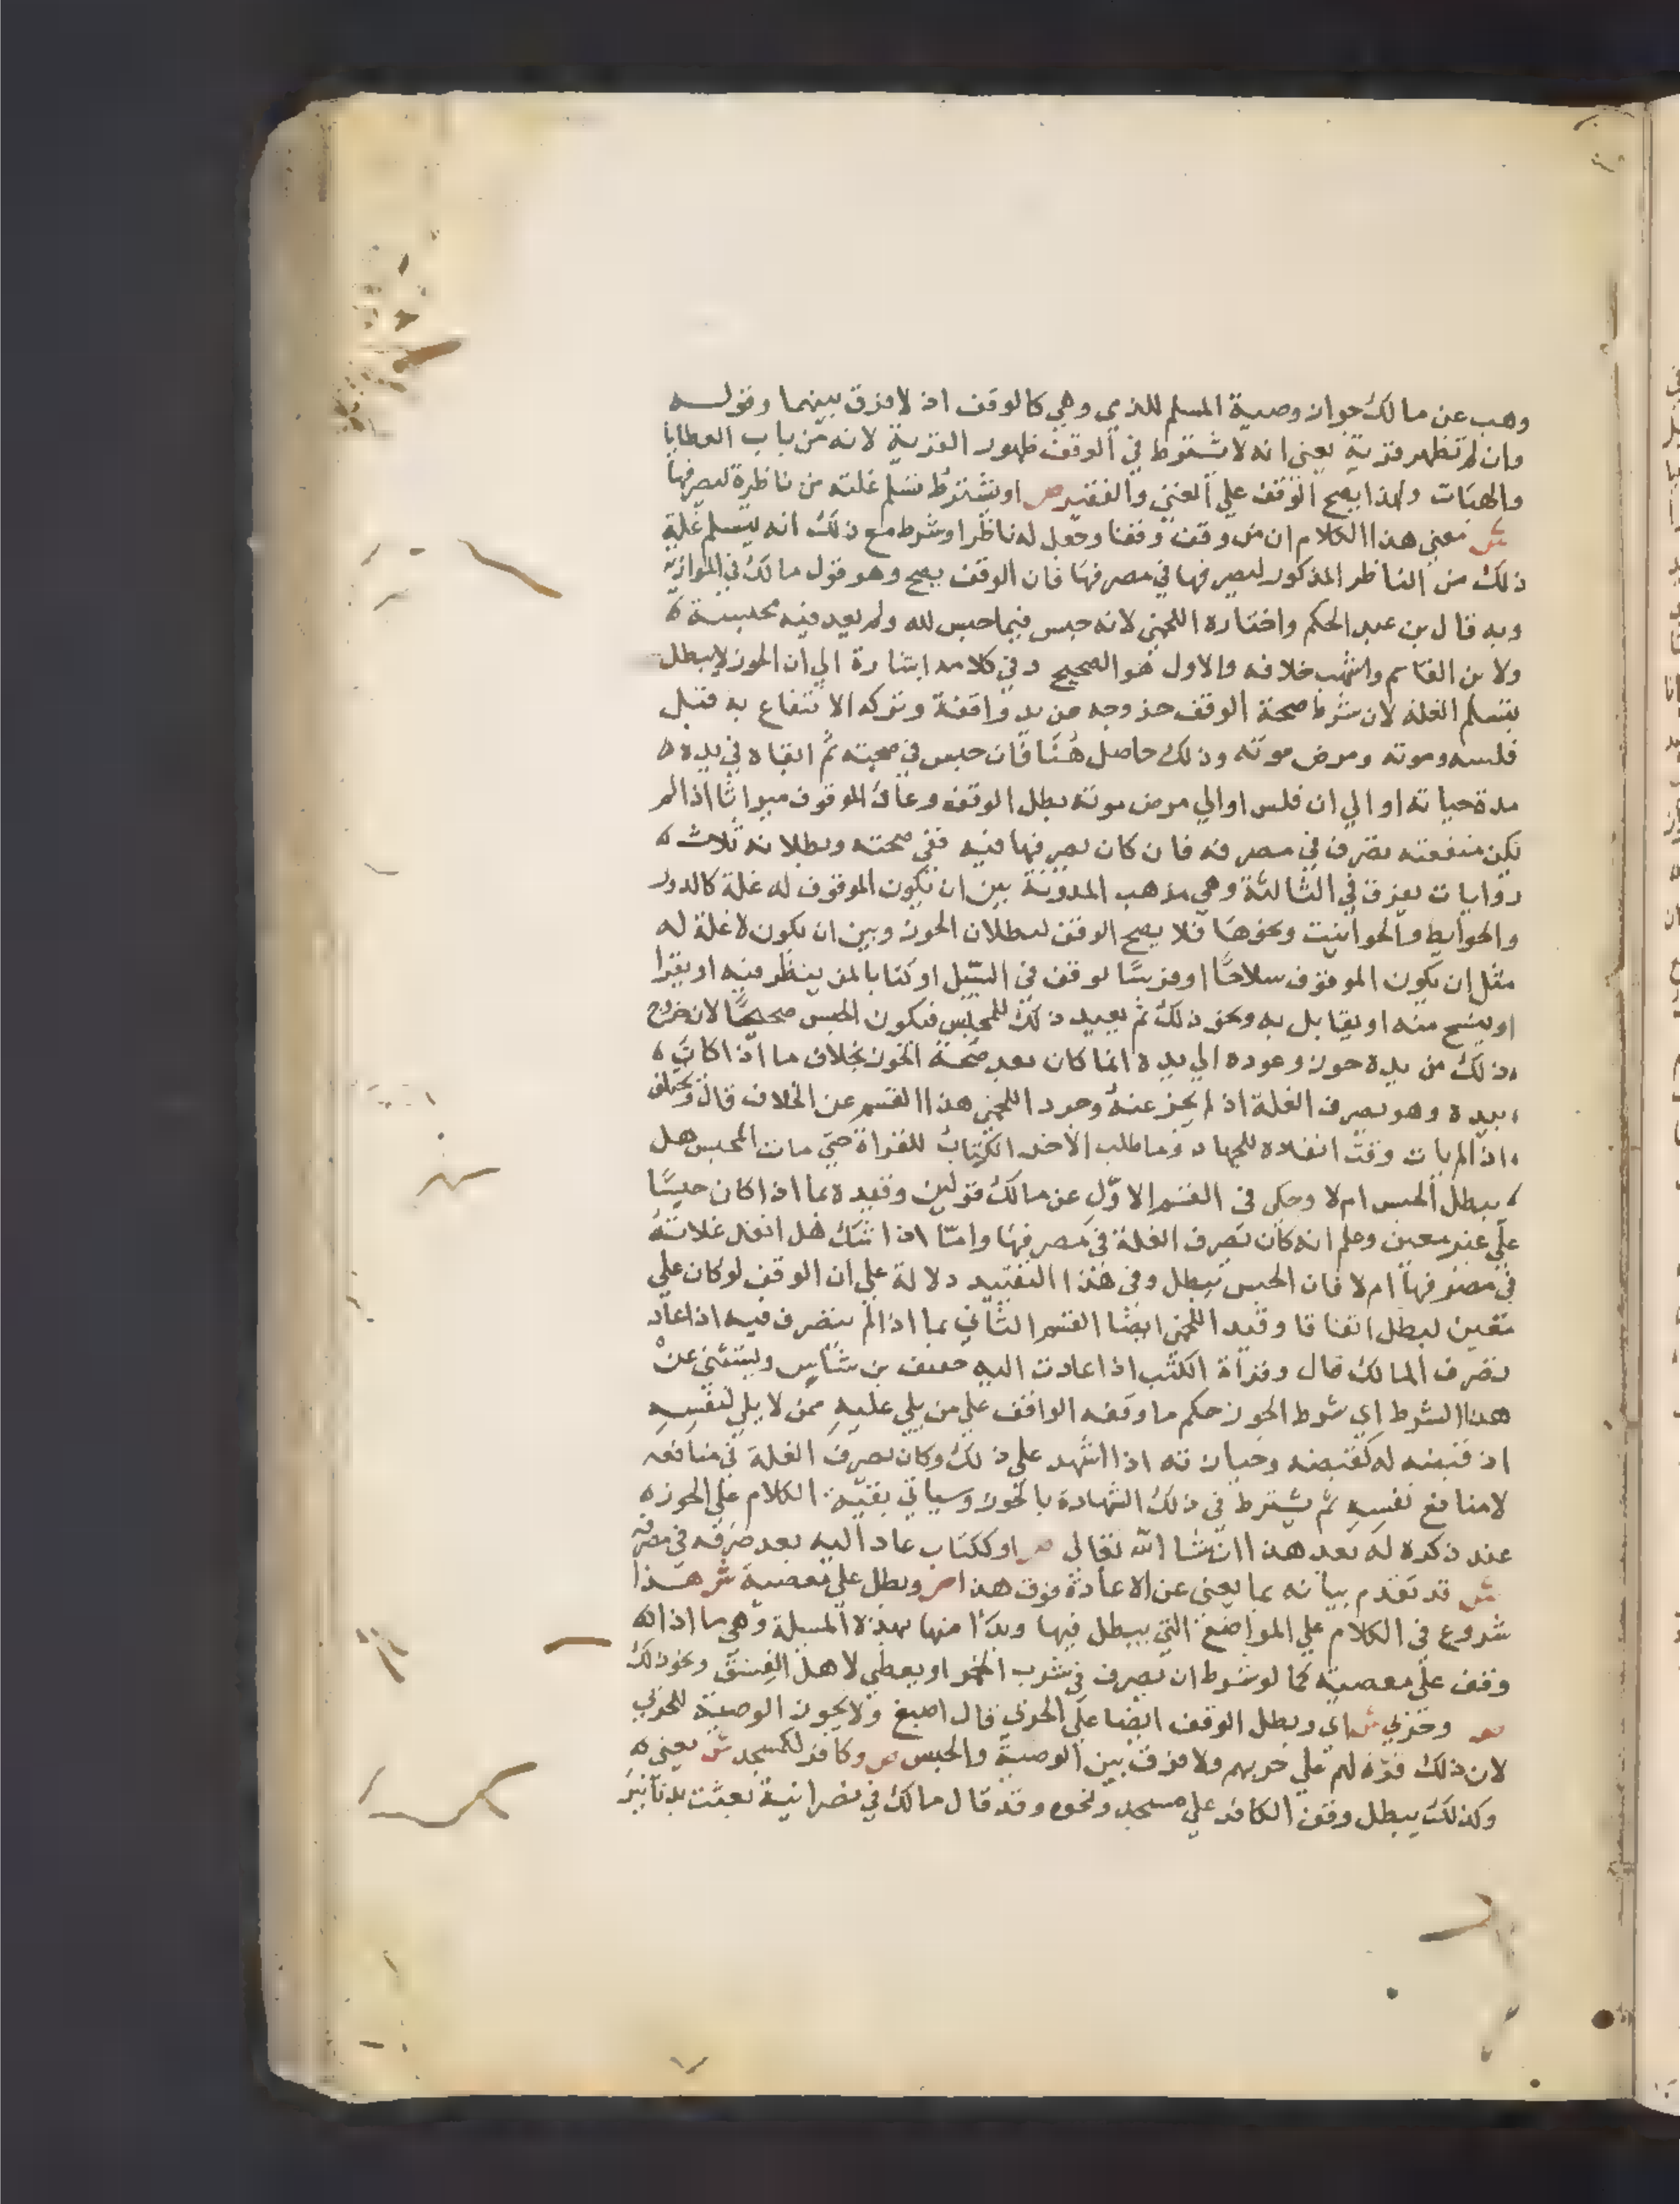 وهب عن مالك جواز وصية المسلم للذمي وهي كالوقف اذ لا فرق بينهما وقوله
وان لم تظهر قربة يعني انه لا يشترط في الوقف ظهور القربة لانه من باب العطايا
والهبات ولهذا يصح الوقف علي الغني والفقير ص او يشترط تسلم غلته من ناظره ليصرفها
ش معني هذا الكلام ان من وقف وقفا وجعل له ناظرا وشرط مع ذلك انه يتسلم غلة
ذلك من الناظر المذكور ليصرفها في مصرفها فان الوقف يصح وهو قول مالك في الموازية
وبه قال بن عبد الحكم واختاره اللخمي لانه حبس فيما حبس لله ولم يعد فيه تحبيسه
ولابن القاسم واشهب خلافه والاول هو الصحيح وفي كلامه اشارة الي ان الحوز لا يبطل
بتسلم الغلة لان شرط صحة الوقف خروجه من يد واقفه وتركه الانتفاع به قبل
فلسه وموته ومرض موته وذلك حاصل هنا فان حبس في صحته ثم ابقاه في يده
مدة حياته او الي ان فلس او الي مرض موته بطل الوقف وعاد الموقوف ميراثا اذا لم
يكن منفعته تصرف في مصرفه فان كان يصرفها فيه ففي صحته وبطلانه ثلاث
روايات يفرق في الثالثة وهي مذهب المدونة بين ان يكون الموقوف له غلة كالدور
والحوايط والحوانيت ونحوها فلا يصح الوقف لبطلان الحوز وبين ان يكون لا غلة له
مثل ان يكون الموقوف سلاحا او فرسا لوقف في السبيل او كتابا لمن ينظر فيه او يقرا
او ينسخ منه او يقابل به ونحو ذلك ثم يعيد ذلك للمحبس فيكون الحبس صحيحا لان خروج
ذلك من يده حوز وعوده الي يده انما كان بعد صحة الحوز بخلاف ما اذا كانت
بيده وهو يصرف الغلة اذ لم يخرج عنه وجرد اللخمي هذا القسم عن الخلاف قال ويختلف
اذا لم يات وقت انفاده للجهاد وما طلب الاخذ الكتاب للقراة حتي مات المحبس هل
يبطل الحبس ام لا وحكي في القسم الاول عن مالك قولين وقيده بما اذا كان حبسا
علي غير معين وعلم انه كان يصرف الغلة في مصرفها واما اذا شك هل انفذ غلاته
في مصرفها ام لا فان الحبس يبطل وفي هذا التقييد دلالة علي ان الوقف لو كان علي
معين لبطل اتفاقا وقيد اللخمي ايضا القسم الثاني بما اذا لم يتصرف فيه اذا عاد
تصرف المالك قال وقراة الكتب اذا عادت اليه خفيف بن شاس ويستثني عن
هذا الشرط اي شرط الحوز حكم ما وقفه الواقف علي من يلي عليه ممن لا يلي لنفسه
اذ قبضه له كقبضه وحيازته اذا اشهد علي ذلك وكان يصرف الغلة في منافعه
لا منافع نفسه ثم يشترط في ذلك الشهادة بالحوز وسياتي بقية الكلام علي الحوز
عند ذكره له بعد هذا ان شا الله تعالي ص او ككتاب عاد اليه بعد صرفه في مصرفه
ش قد تقدم بيانه بما يغني عن الاعادة فوق هذا ص وبطل علي معصية ش هذا
شروع في الكلام علي المواضع التي يبطل فيها وبدا منها بهذه المسيلة وهي ما اذا
وقف علي معصية كما لو شرط ان يصرف في شرب الخمر او يعطي لاهل الفسق ونحو ذلك
ص وحربي ش اي ويبطل الوقف ايضا علي الحربي قال اصبغ ولا يجوز الوصية للحربي
لان ذلك قوة لهم علي حربهم ولا فرق بين الوصية والحبس ص وكافر لكمسجد ش يعني
وكذلك يبطل وقف الكافر علي مسجد ونحوه وقد قال مالك في نصرانية بعثت بدنانير